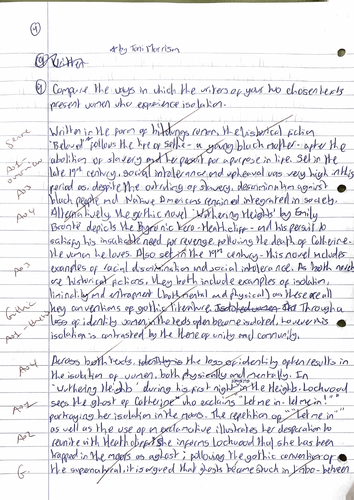 * by Toni Morrison
Compare the ways in which the writers of your two chosen texts
present women who experience isolation.
Written in the form of bildungsroman, the historical fiction
"Beloved" follows the life of Sethe - a young black mother - after the
abolition of slavery and her pursuit for a purpose in life. Set in the
late 19th century, social intolerance and upheaval was very high in this
period as, despite the outruling of slavery, discrimination against
black people and Native Americans remained integrated in society.
Alternatively the gothic novel 'Wuthering Heights' by Emily
Brontë depicts the Byronic hero - Heathcliff - and his pursuit to
satisfy his insatiable need for revenge following the death of Catherine -
the woman he loves. Also set in the 19th century - this novel includes
examples of racial discrimination and social intolerance. As both novels
are historical fictions, they both include examples of isolation,
liminality and entrapment (both mental and physical) as these are all
key conventions of gothic literature. Through a
loss of identity women in the texts often become isolated, however this
isolation is contrasted by the theme of unity and community.
Across both texts, the loss of identity often results in
the isolation of women, both physically and mentally. In
"Wuthering Heights" during his first night in the Heights, Lockwood
sees the ghost of Catherine who exclaims "Let me in - let me in!"
portraying her isolation in the moors. The repetition of "let me in"
as well as the use of an exclamative illustrates her desperation to
reunite with Heathcliff. She informs Lockwood that she has been
trapped in the moors as a ghost; following the gothic convention of
the supernatural, it is argued that ghosts become stuck in limbo - between
Genre
AO3
AO4
AO3
Gothic
AO4
AO2
AO2
G.